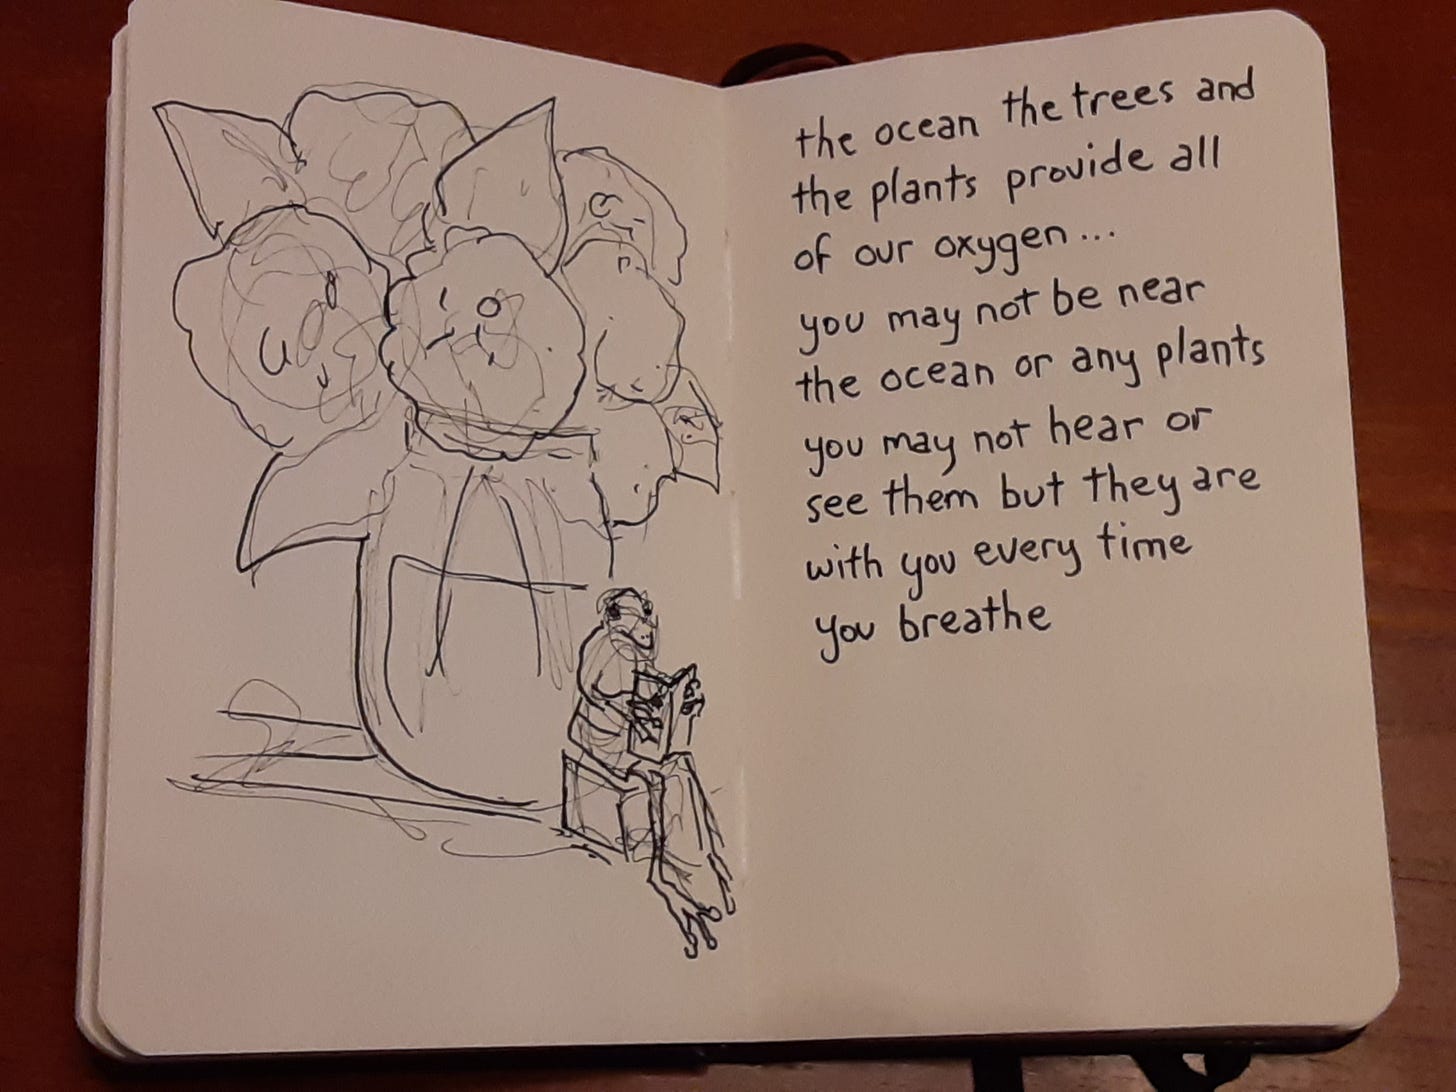 the ocean the trees and
the plants provide all
of our oxygen...
you may not be near
the ocean or any plants
you may not hear or
see them but they are
with you every time
you breathe